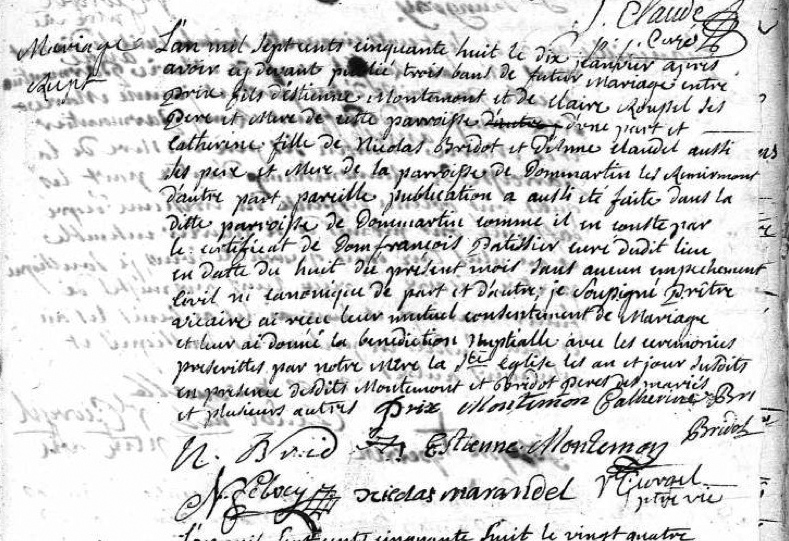 J. Claude
Curé
Mariage
Rupt
L'an mil sept cents cinquante huit le dix janvier après
avoir cy devant publié trois bans de futur Mariage entre
Prix fils d'Estienne Montemont et de Claire Roussel ses
Pere et Mere de cette parroisse d'une part et
Catherine fille de Nicolas Bridot et d'Anne Claudel aussi
ses pere et Mere de la parroisse de Dommartin les Remirmont
d'autre part pareille publication a aussi été faite dans la
ditte parroisse de Dommartin comme il en conste par
le certificat de Domfrancois Patissier curé dudit lieu
en datte du huit du présent mois sans aucun empechement
Civil ni canonique de part et d'autre; je soussigné Prêtre
vicaire ai reçu leur mutuel consentement de Mariage
et leur ai donné la benediction nuptialle avec les ceremonies
prescrittes par notre Mere la Ste église les an et jour susdits
en presence desdits Montemont et Bridot Peres des mariés
et plusieurs autres Prix Montemon Catherine Bri
Bridot
N. Brid Estienne Montemon
Nicolas marandel
ptre vic
L'an mil sept cents cinquante huit le vingt quatre